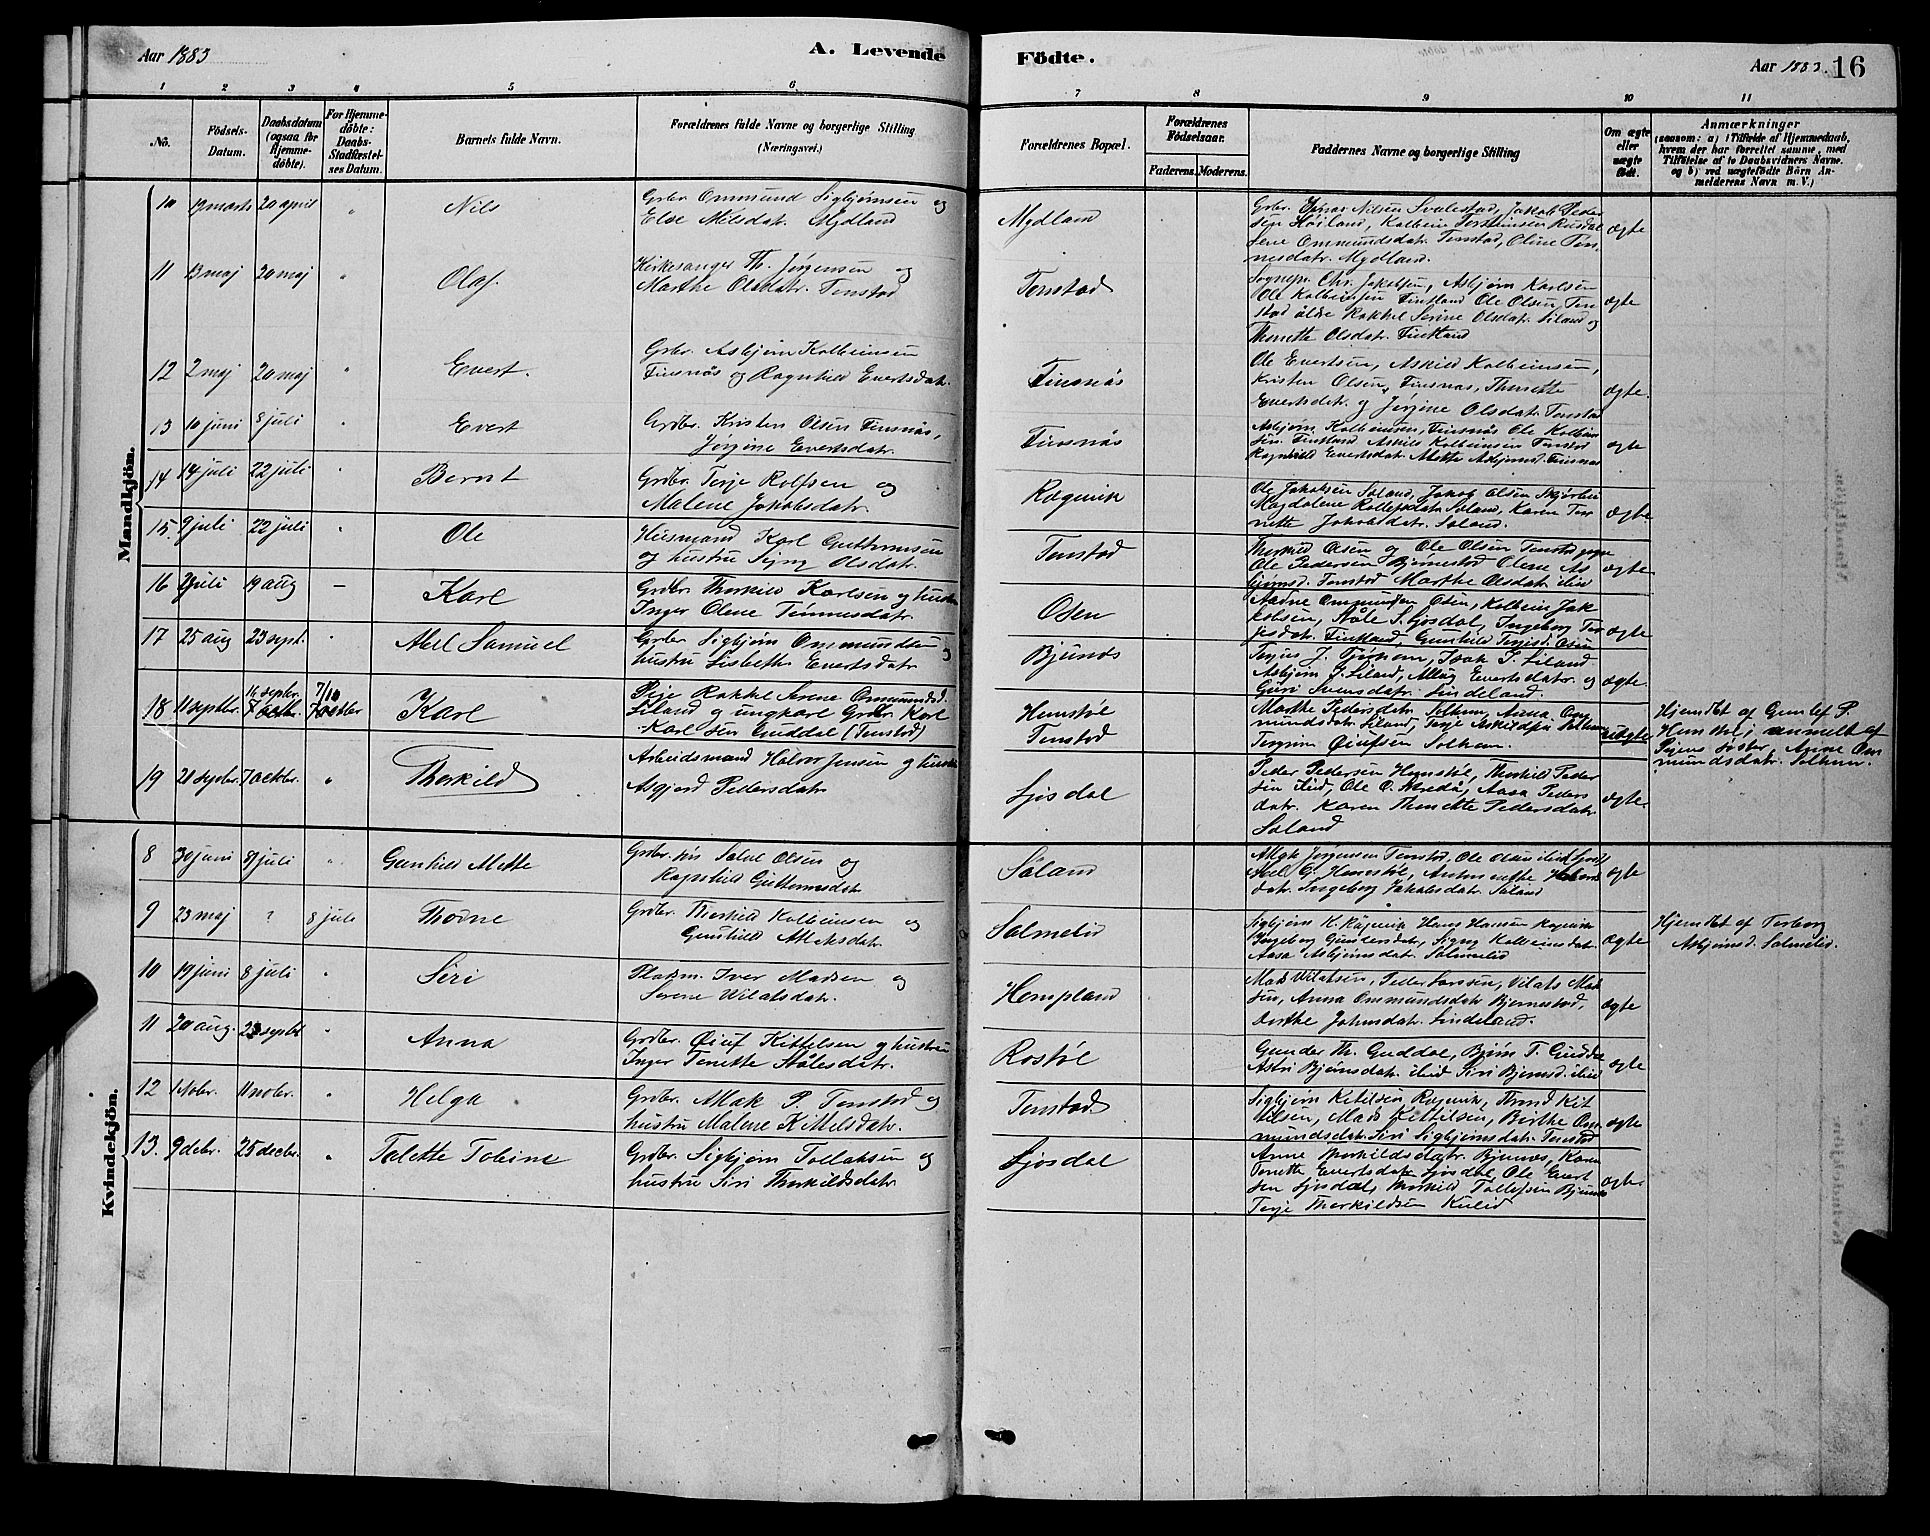 Aar 1883
A. Levende
Födte.
Aar 1883. 16
1 2 3 4 5 6
7 8 9 10 11
No.
Födsels-
Datum.
Daabsdatum
(ogsaa for
Hjemme-
döbte).
For Hjemme-
döbte:
Daabs-
Stadfæstel-
ses Datum.
Barnets fulde Navn.
Forældrenes fulde Navne og borgerlige Stilling
(Næringsvei.)
Forældrenes Bopæl.
Forældrenes
Födselsaar.
Faderens. Moderens.
Faddernes Navne og borgerlige Stilling
Om ægte
eller
uægte
födt.
Anmærkninger
(saasom: a) i Tilfælde af Hjemmedaab,
hvem der har forrettet samme, med
Tilföielse af to Daabsvidners Navne.
og b) ved uægtefödte Börn An-
melderens Navn m. V.)
Mandkjön.
10 19 marts 20 april " Nils
Grbr. Ommund Sigbjørnsen og
Else Nilsdat. Mydland
Mydland
Nilsen Svalestad, Jakob Peder
sen Høiland, Kolbein Torsteinsen Rusdal
Ommundsdatr. Tonstad, Oline Tøn-
nesdatr. Mydland.
ægte
11 13 maj 20 maj " Olaf.
Kirkesanger Th. Jørgensen og
Marthe Olsdatr. Tonstad
Tonstad
Sognepr. Chr. Jakobsen, Asbjørn Karlsen
Ole Kolbeinsen Fintland Ole Olsen Ton
stad ældre Rakkel Serine Olsdatr. Liland og
Thonette Olsdatr. Fintland
ægte
12 2 maj 20 maj " Evert.
Grbr. Asbjørn Kolbeinsen
Finsnås og Ragnhild Evertsdatr.
Finsnås
Ole Evertsen, Askild Kolbeinsen,
Kristen Olsen, Finsnas, Thonette
Evertsdatr. og Jørgine Olsdatr. Tonstad
ægte.
13 10 juni 8 juli " Evert
Grdbr. Kristen Olsen Finsnås,
Jørgine Evertsdatr.
Finsnås
Asbjørn Kolbeinsen, Finsnås Ole Kolbein
sen Fintland Askild Kolbeinsen Tonstad
Ragnhild Evertsdatr. Mette Asbjørnsd. Finsnas
ægte
14 14 juli 22 juli " Bernt
Grdbr. Terje Rolfsen og
Malene Jakobsdatr.
Ragevik
Ole Jakobsen Saland, Jakob Olsen
Magdalene Saland, Karen Ton
nette Jakobsdatr. Saland.
ægte
15. 9 juli 22 juli " Ole
Husmand Karl Guttormsen
og hustru Signy Olsdatr.
Tonstad
Thorkild Olsen og Ole Olsen Tonstad
Ole Pedersen Bjørnestad Olene As
bjørnsd. Tonstad Marthe Olsdatr. ibid
ægte
16 2 juli 19 aug – Karl
Grdbr. Thorkild Karlsen og hustru
Inger Olene Tønnesdatr.
Osen
Aadne Ommundsen Osen, Kolbein Jak
obsen, Ståle S. Josdal, Ingeborg Ter
jesdatr. Fintland, Gunhild Terjesd. Osen
ægte
17 25 aug 23 sept. " Abel Samuel
Grdbr. Sigbjørn Ommundsen og
hustru Lisbeth Evertsdatr.
Bjunås
Terjus J. Isak P. Liland
Asbjørn J. Liland, Evertsdatr. og
Guri Svensdatr. Lindeland.
ægte.
18 11 septbr. 16 septbr. 7/10
7 octbr. 7 octbr Karl
Pige Rakkel Serene Ommundsd.
Liland og ungkarl Grdbr. Karl
Karlsen Guddal (Tonstad)
Homstøl
Tonstad
Marthe Pedersdatr. Solhom, Anna Om
mundsdatr. Liland, Terje Askildsen Solhom
Øiufsen Solhom.
uægte
Hjemdøbt af Gunlef P.
Homstøl; anmelt af
Pigens søster, Anne Om-
mundsdatr. Solhom.
19 28 septbr. 7 octbr. " Thorkild
Arbeidsmand Halvor Jensen og hustru
Asgjerd Pedersdatr
Josdal
Peder Pedersen Homstøl, Thorkild Peder
sen ibid, Ole O. Aasa Peders
datr. Karen Thonette Pedersdatr.
Saland
ægte
Kvindekjön.
8 30 juni 8 juli " Gunhild Mette
Grdbr. Salve Olsen og
Ragnhild Guttormsdat
Såland
Atlak Jørgensen Tonstad, Ole
Abel G. Homstøl,
datr. Ingeborg Jakobsdatr. Saland
ægte
9 23 maj ? 8 juli Thorne
Grdbr. Thorkild Kolbeinsen og
Gunhild Atlaksdatr.
Salmelid
Sigbjørn K. Ragevik Hans Hansen Ragevik
Ingeborg Gundersdatr, Signy Kolbeinsdatr.
Aasa Asbjørnsdatr. Salmelid
ægte
Hjemdøbt af Torborg
Asbjørnsd. Salmelid.
10 19 juni 8 juli " Siri
Pladsm. Iver Madsen og
Serene Vilatsdatr.
Hompland
Mads Vilatsen, Peder Vilats Mad
sen, Anna Ommundsdatr Bjørnestad,
Dorthe Johnsdatr. Lindeland.
ægte
11 20 aug. 23 septbr " Anna
Grdbr. Øiuf Kittelsen og hustru
Inger Tonette Stålesdatr.
Rostøl
Gunder Th. Guddal, Bjørn T. Guddal
Astri Bjørnsdatr. ibid Siri Bjørnsd. ibid
ægte
12 1 Nobr. 11 nobr. " Helga
Grdbr. Atlak P. Tonstad og
hustru Malene Kittelsdatr.
Tonstad
Sigbjørn Kittilsen Ragevik, Trond Kit
tilsen, Mads Kittilsen, Birthe Om-
mundsdatr. Siri Sigbjørnsdatr. Tonstad
ægte
13. 9 debr. 25 decbr. " Talette Tobine
Grdbr. Sigbjørn Tollaksen og
hustru Siri Thorkildsdatr.
Josdal
Anne Thorkildsdatr. Bjunås, Karen
Tonette Evertsdatr. Josdal, Ole Evert
sen Josdal, Thorkild Tollefsen Bjunås
Terje Thorkildsen Kvelid
ægte.